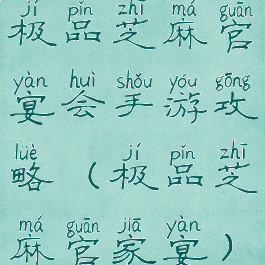 jí pǐn zhī má guān
极品芝麻官
yàn huì shǒu yóu gōng
宴会手游攻
lüè jí pǐn zhī
略（极品芝
má guān jiā yàn
麻官家宴）